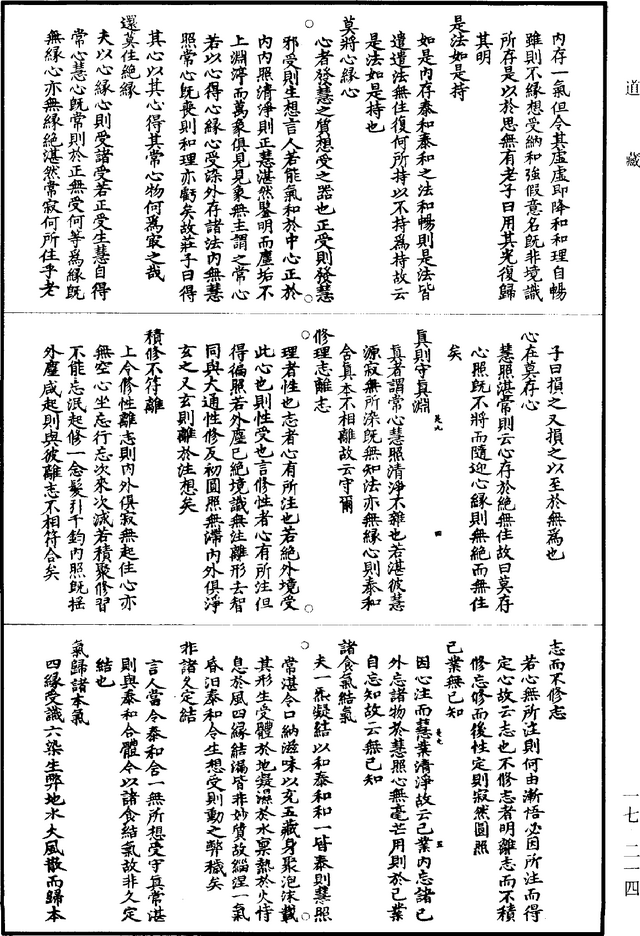 道藏
內存一氣但令其虛虛即降和和理自暢
雖則不緣想受納和強假意名既非境識
所存是以於思無有老子曰用其光復歸
其明
是法如是持
如是內存泰和泰和之法和暢則是法皆
遣遣法無住復何所持以不持爲持故云
是法如是持也
莫將心緣心
心者發慧之質想受之器也正受則發慧
邪受則生想言人若能氣和於中心正於
內內照清淨則正慧湛然鑒明而塵垢不
上淵渟而萬象俱見見象無主謂之常心
若以心得心緣心受染外存諸法內無慧
照常心既喪則和理亦虧矣故莊子曰得
其心以其心得其常心物何爲㝡之哉
還莫住絕緣
夫以心緣心則受諸受若正受生慧自得
常心慧心既常則於正無受何等爲緣既
無緣心亦無緣絕湛然常寂何所住乎老
子曰損之又損之以至於無爲也
心在莫存心
慧照湛常則云心存於絕無住故曰莫存
心照既不將而隨迎心緣則無絕而無住
矣
真則守真淵
真者謂常心慧照清淨不雜也若湛彼慧
源寂無所染既無知法亦無緣心則泰和
含真本不相離故云守爾
修理志離志
理者性也志者心有所注也若絕外境受
此心也則性受也言修性者心有所注但
得徧照若外塵已絕境識無注離形去智
同與大通性修反初圓照無滯內外俱淨
玄之又玄則離於注想矣
積修不符離
上令修性離志則內外俱寂無起住心亦
無空心坐忘行忘次來次滅若積聚修習
不能志泯起修一念髮引千鈞內照既搖
外塵咸起則與彼離志不相符合矣
志而不修志
若心無所注則何由漸悟必因所注而得
定心故云志也不修志者明離志而不積
修忘修而後性定則寂然圓照
已業無已知
因心注而慧業清淨故云已業內忘諸已
外忘諸物於慧照心無毫芒用則於已業
自忘知故云無已知
諸食氣結氣
夫一炁凝結以和泰和和一皆泰則慧照
常湛今口納滋味以充五藏身聚泡沫載
其形生受體於地凝濕於水稟熱於火恃
息於風四緣結漏皆非妙質故緇涅一氣
昏汨泰和令生想受則動之弊穢矣
非諸久定結
言人當令泰和合一無所想受守真常湛
則與泰和合體今以諸食結氣故非久定
結也
氣歸諸本氣
四緣受識六染生弊地水火風散而歸本
一七 二一四